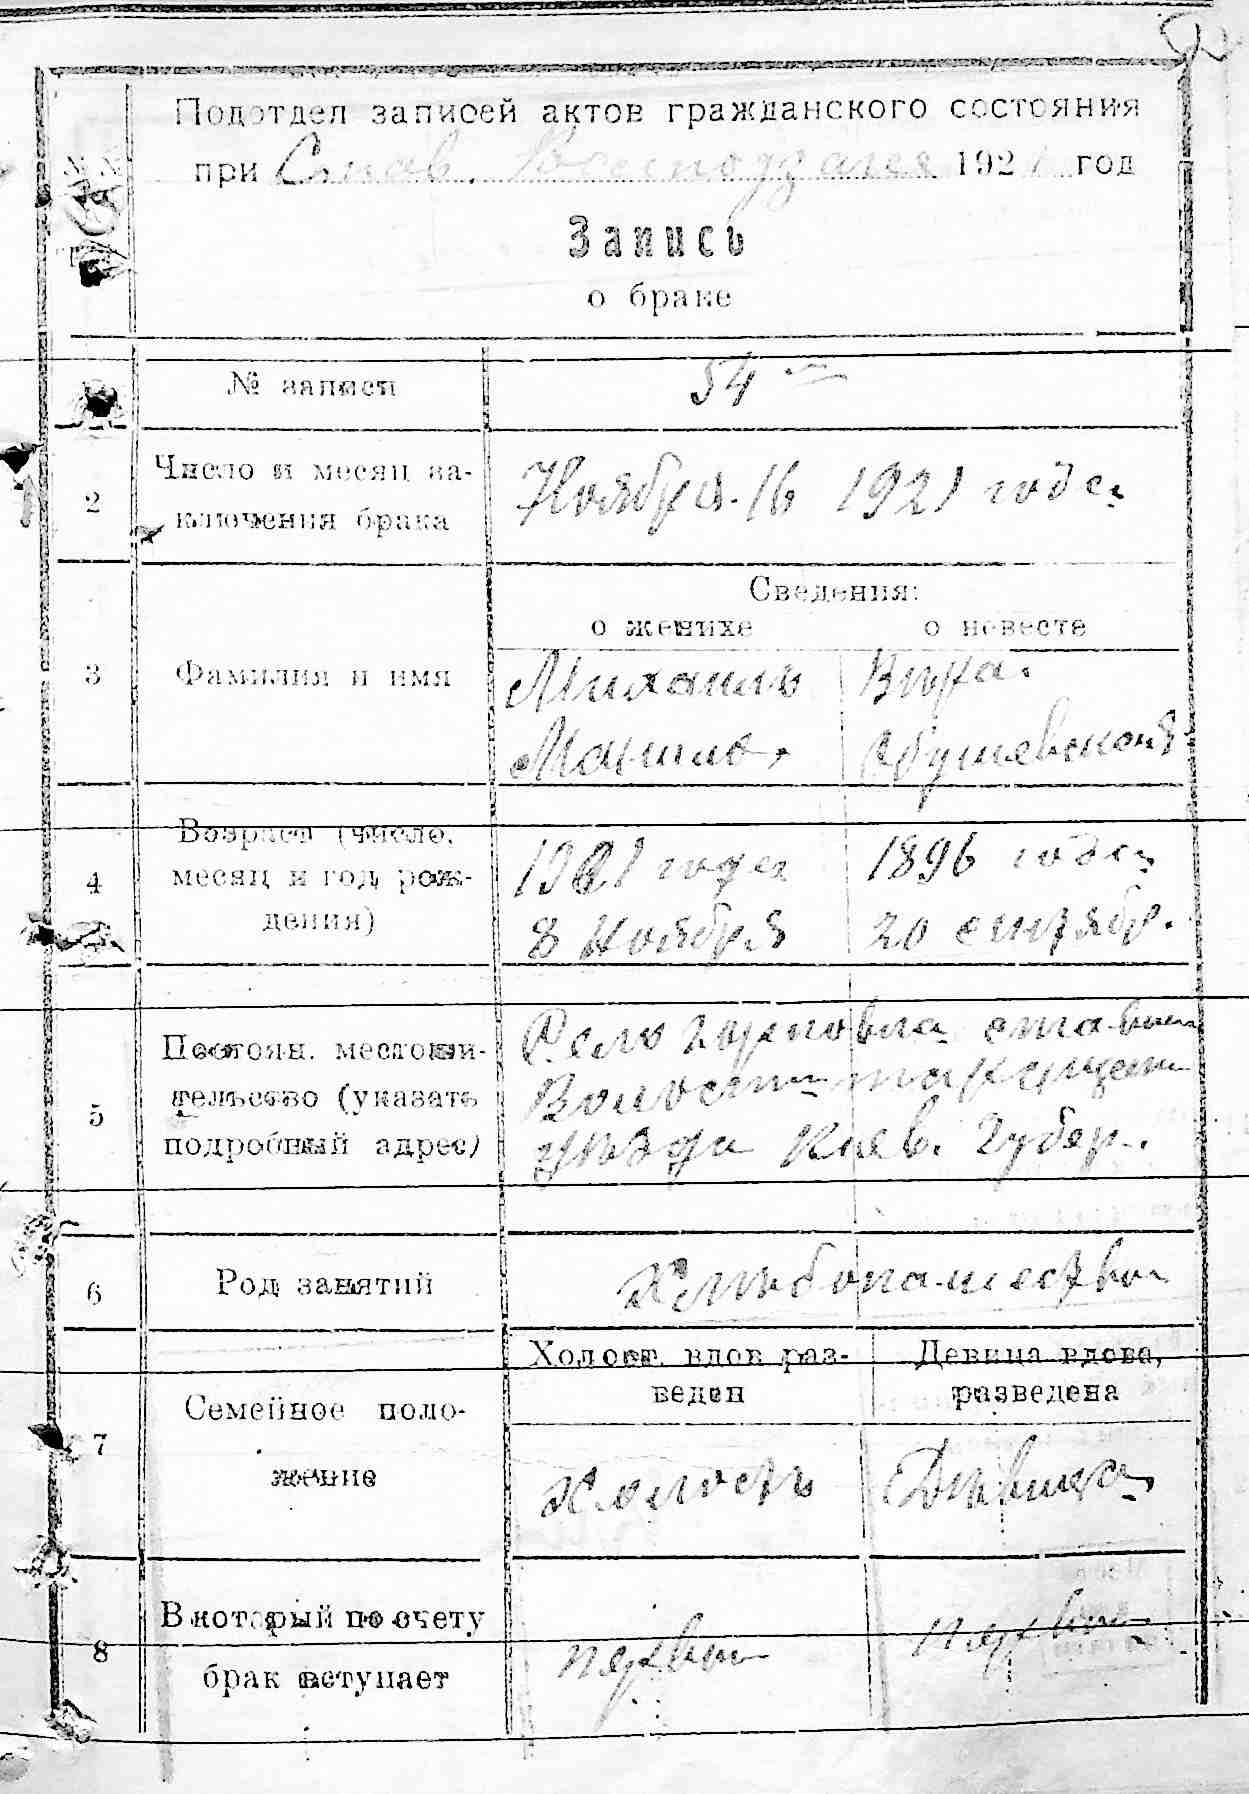 Подотдел записей актов гражданского состояния
при Став. 1921 год
Запись
о браке
№ записи 54
2 Число и месяц за-
ключения брака Ноября 16 1921 года
Сведения:
о женихе о невесте
3 Фамилия и имя Михаилъ Вѣра
4 Возраст (число,
месяц и год рож-
дения) 1901 года 1896 года
8 Ноября 20 сентябр.
5 Постоян. местожи-
тельство (указать
подробный адрес) Село
Волости
уѣзда Киев. Губер.
6 Род занятий Хлѣбопашество
Холост, вдов раз-
веден
Девица вдова,
разведена
7 Семейное поло-
жение холостъ Дѣвица
8 В который по счету
брак вступает первый первый